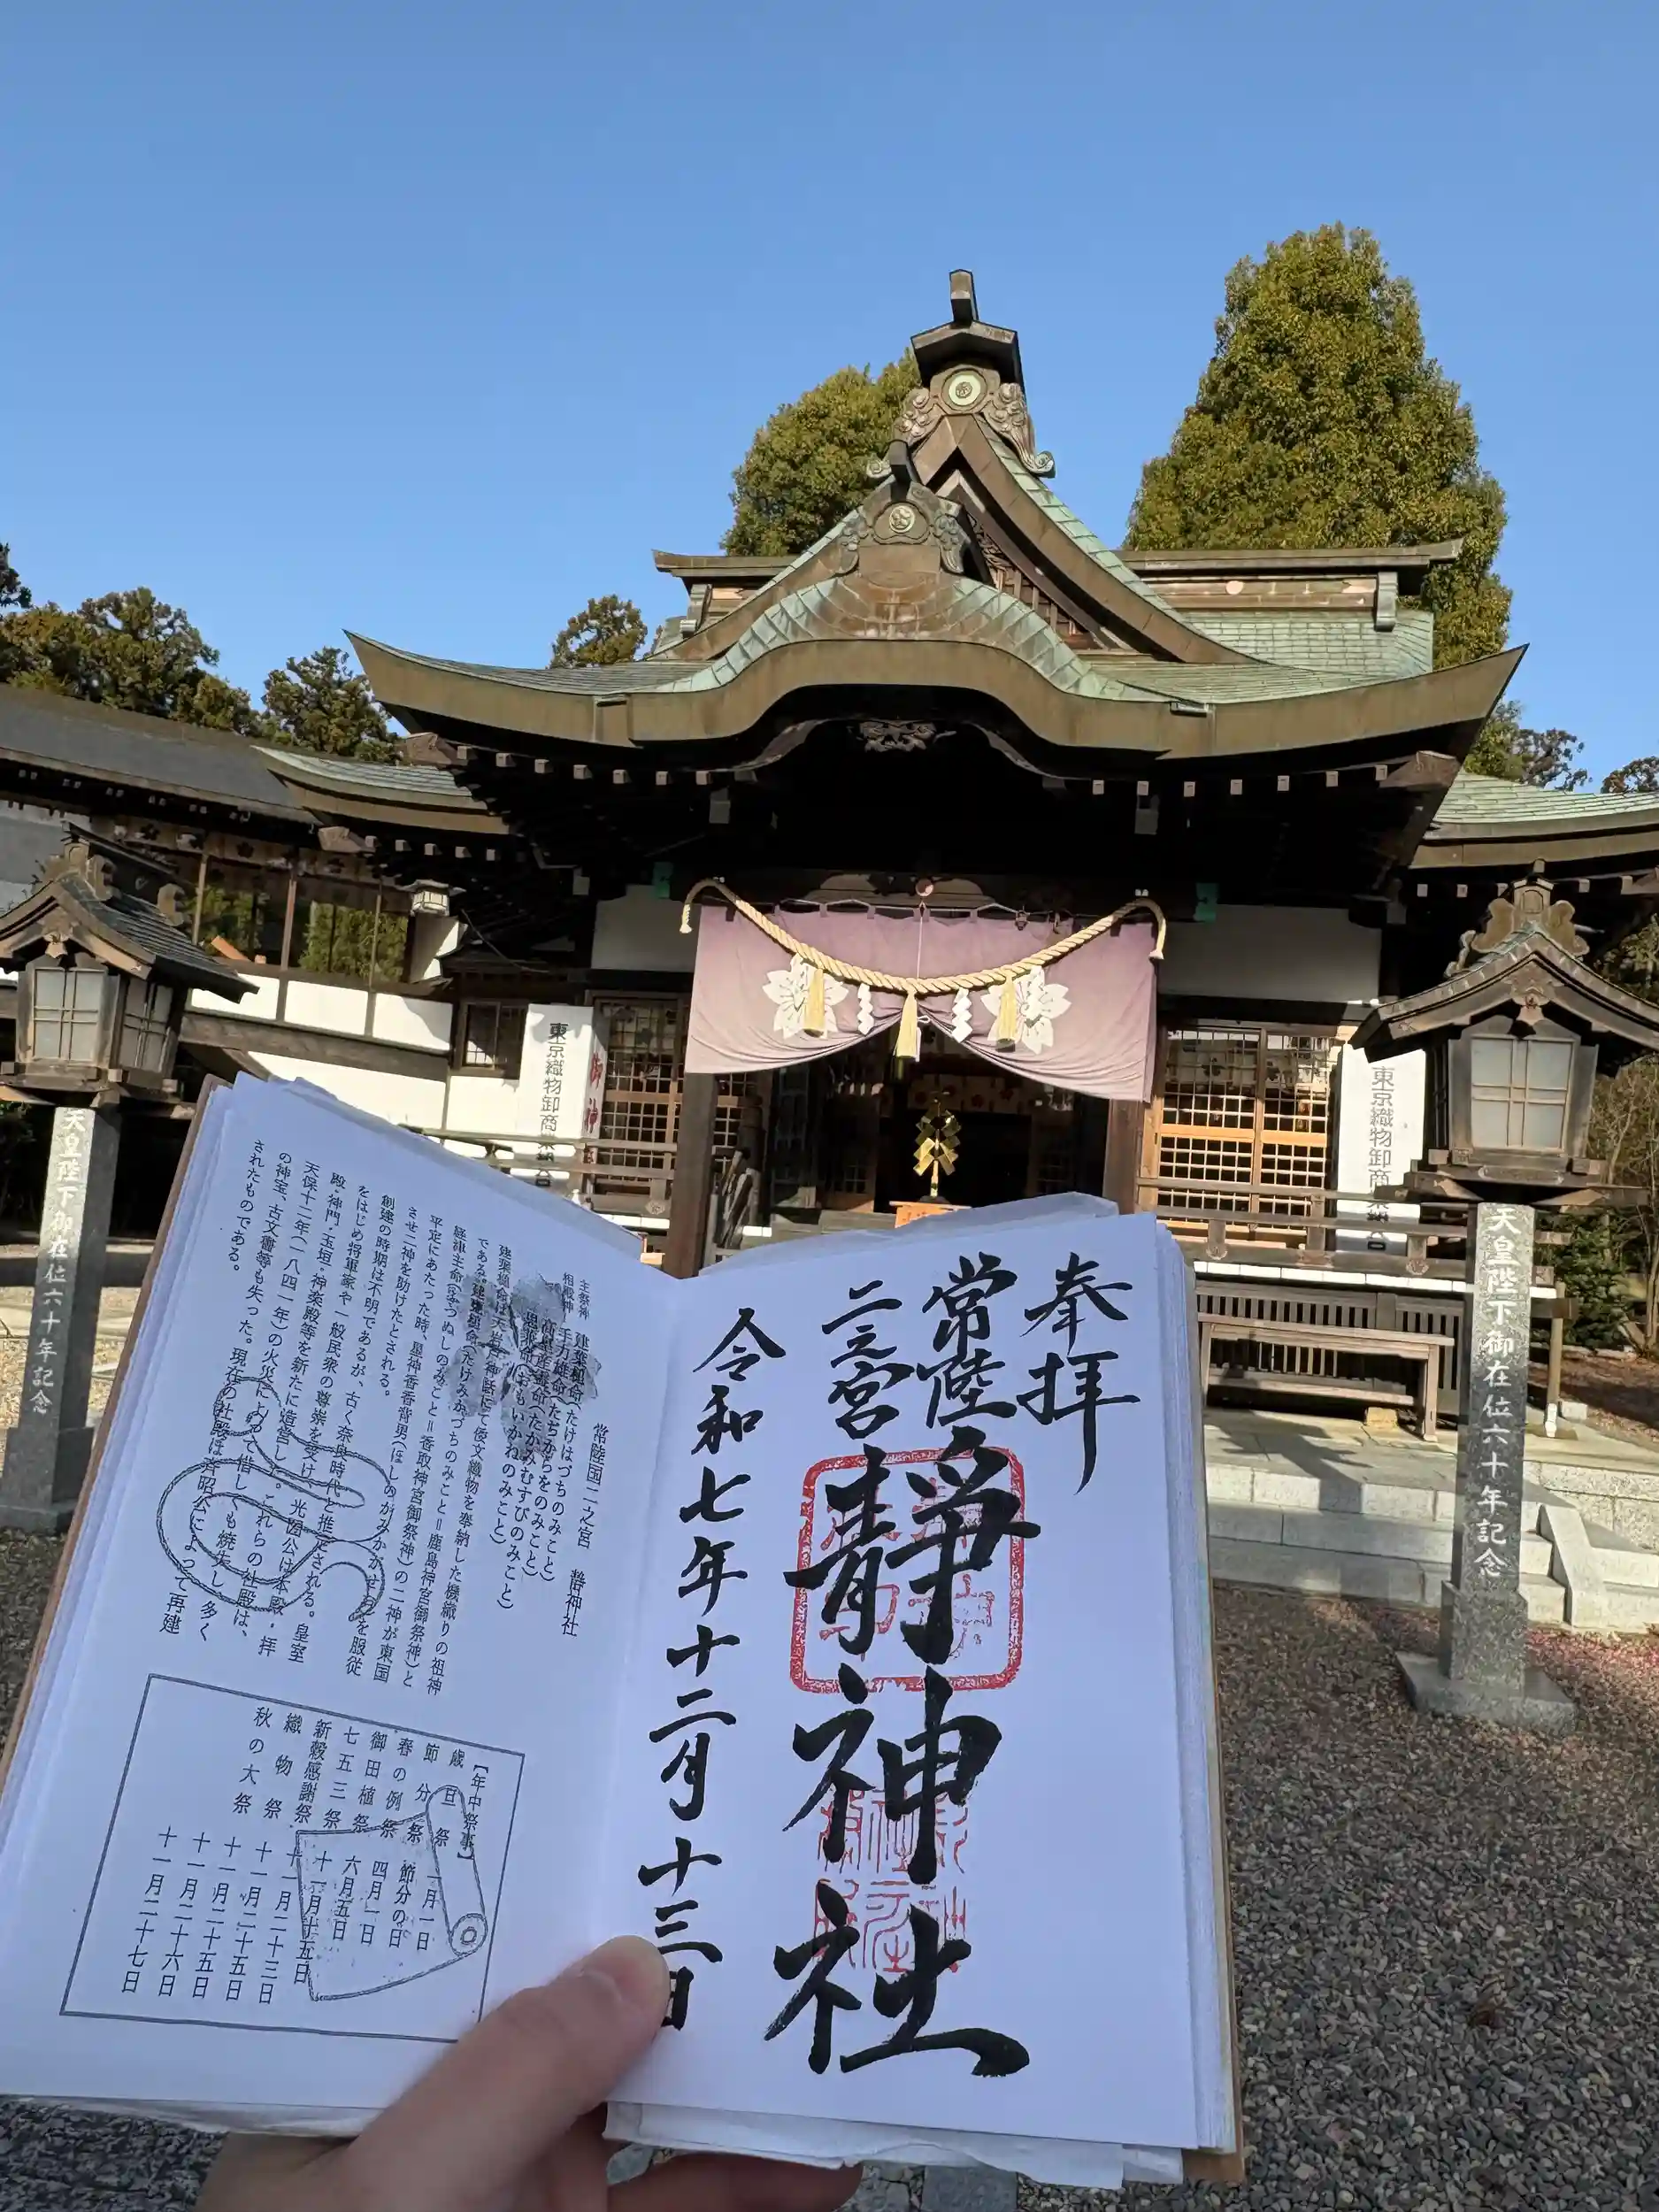 奉拝
常陸
二之宮
静神社
令和七年十二月十三日
常陸国二之宮 静神社
主祭神 建葉槌命(たけはづちのみこと)
相殿神 手力雄命(たちからをのみこと)
高皇産霊命(たかみむすびのみこと)
思兼命(おもいかねのみこと)
建葉槌命は天岩戸神話にて倭文織物を奉納した機織りの祖神
である。建葉槌命(たけみかづちのみこと=鹿島神宮御祭神)と
経津主命(ふつぬしのみこと=香取神宮御祭神)の二神が東国
平定にあたった時、星神香香背男(ほしのかがみかがせお)を服従
させ二神を助けたとされる。
創建の時期は不明であるが、古く奈良時代と推定される。皇室
をはじめ将軍家や一般民衆の尊崇を受け、光圀公は本殿・拝
殿・神門・玉垣・神楽殿等を新たに造営し
天保十二年(一八四一年)の火災によって惜しくも焼失し、多く
の神宝、古文書等も失った。現在の社殿は斉昭公によって再建
されたものである。
【年中祭事】
歳旦祭 一月一日
節分祭 節分の日
春の例祭 四月一日
御田植祭 六月五日
七五三祭 十一月十五日
新穀感謝祭 十一月二十三日
織物祭 十一月二十五日
秋の大祭
十一月二十五日
十一月二十六日
十一月二十七日
東京織物卸商業組合
御神
東京織物卸商
天皇陛下御在位六十年記念
天皇陛下御在位六十年記念